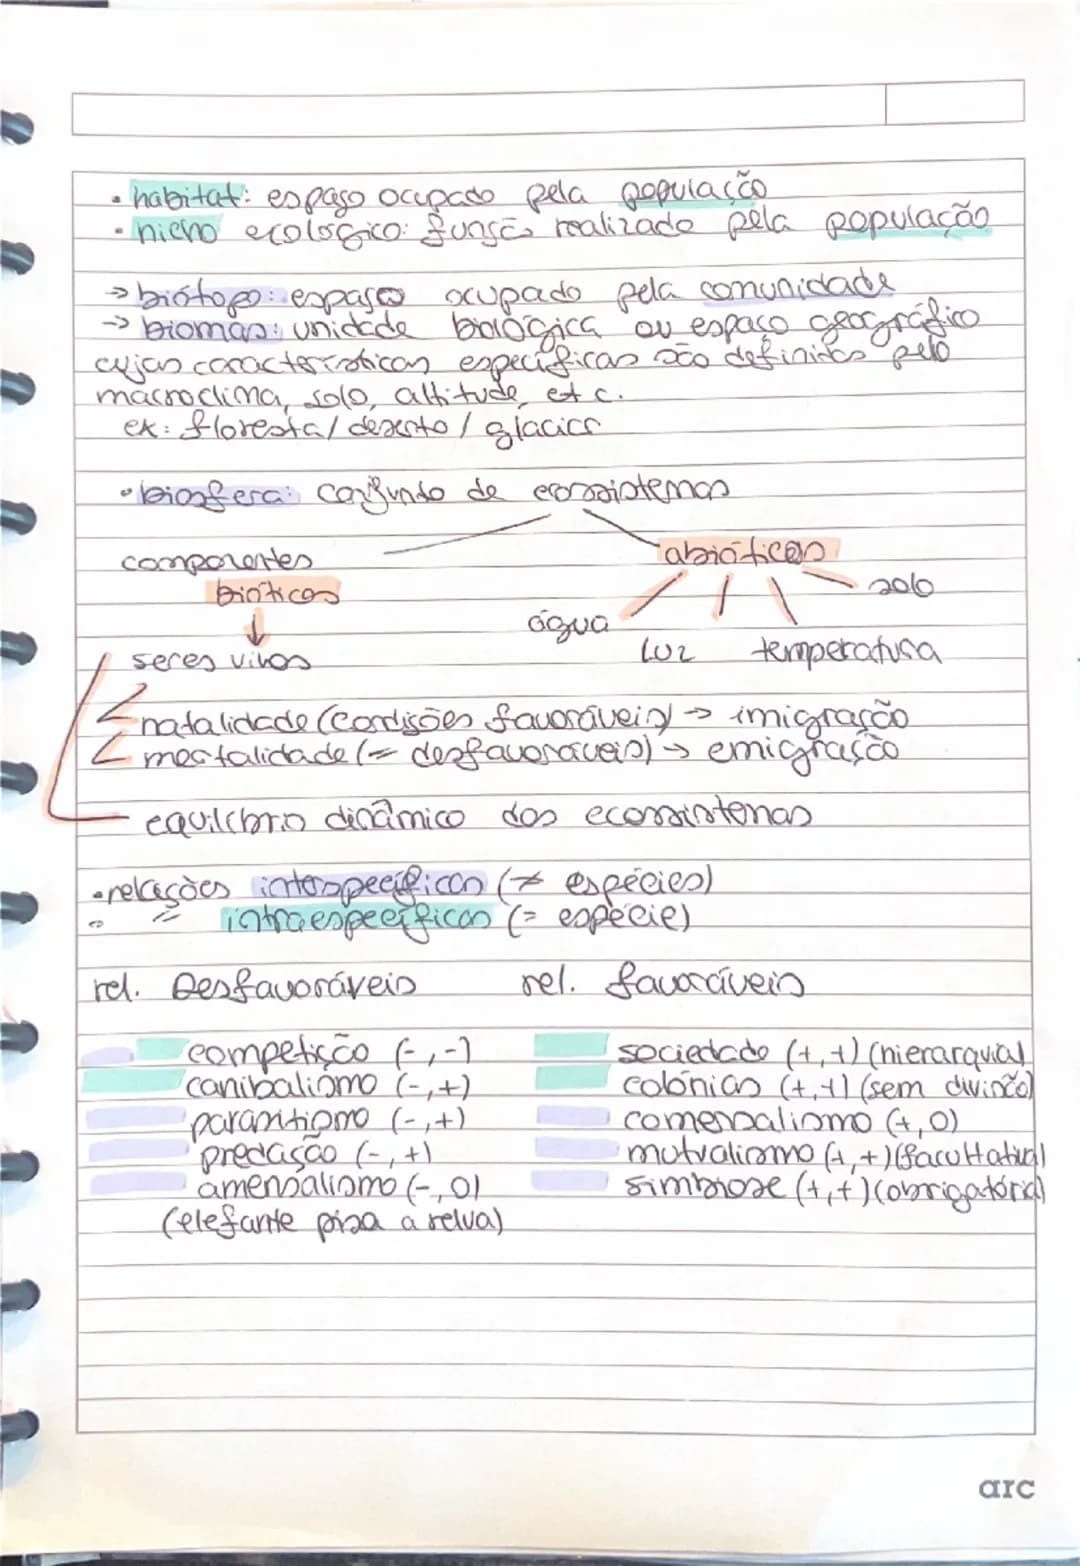 • habitat: espaço ocupado pela população
• nicho ecológico: função realizado pela população
→ biótopo: espaço ocupado pela comunidade
→ biomas: unidade biológica ou espaço geográfico
cujas características específicas são definidas pelo
macroclima, solo, altitude, etc.
ex: floresta/ deserto / glaciar
• biosfera: conjundo de ecossistemas
componentes
bióticos
abióticos
solo
água
luz temperatura
↓
seres vivos
natalidade (condições favoráveis) → imigração
mortalidade (= desfavoráveis) → emigração
equilíbrio dinâmico dos ecossistemas
• relações interspecíficas (≠ espécies)
• " intraespecíficas (= espécie)
rel. Desfavoráveis rel. favoráveis
competição (-,-) sociedade (+,+) (hierarquia)
canibalismo (-,+) colónias (+,+) (sem divisão)
parasitismo (-,+) comensalismo (+,0)
predação (-,+) mutualismo (+,+) (facultativa)
amensalismo (-,0) simbiose (+,+) (obrigatória)
(elefante pisa a relva)
arc